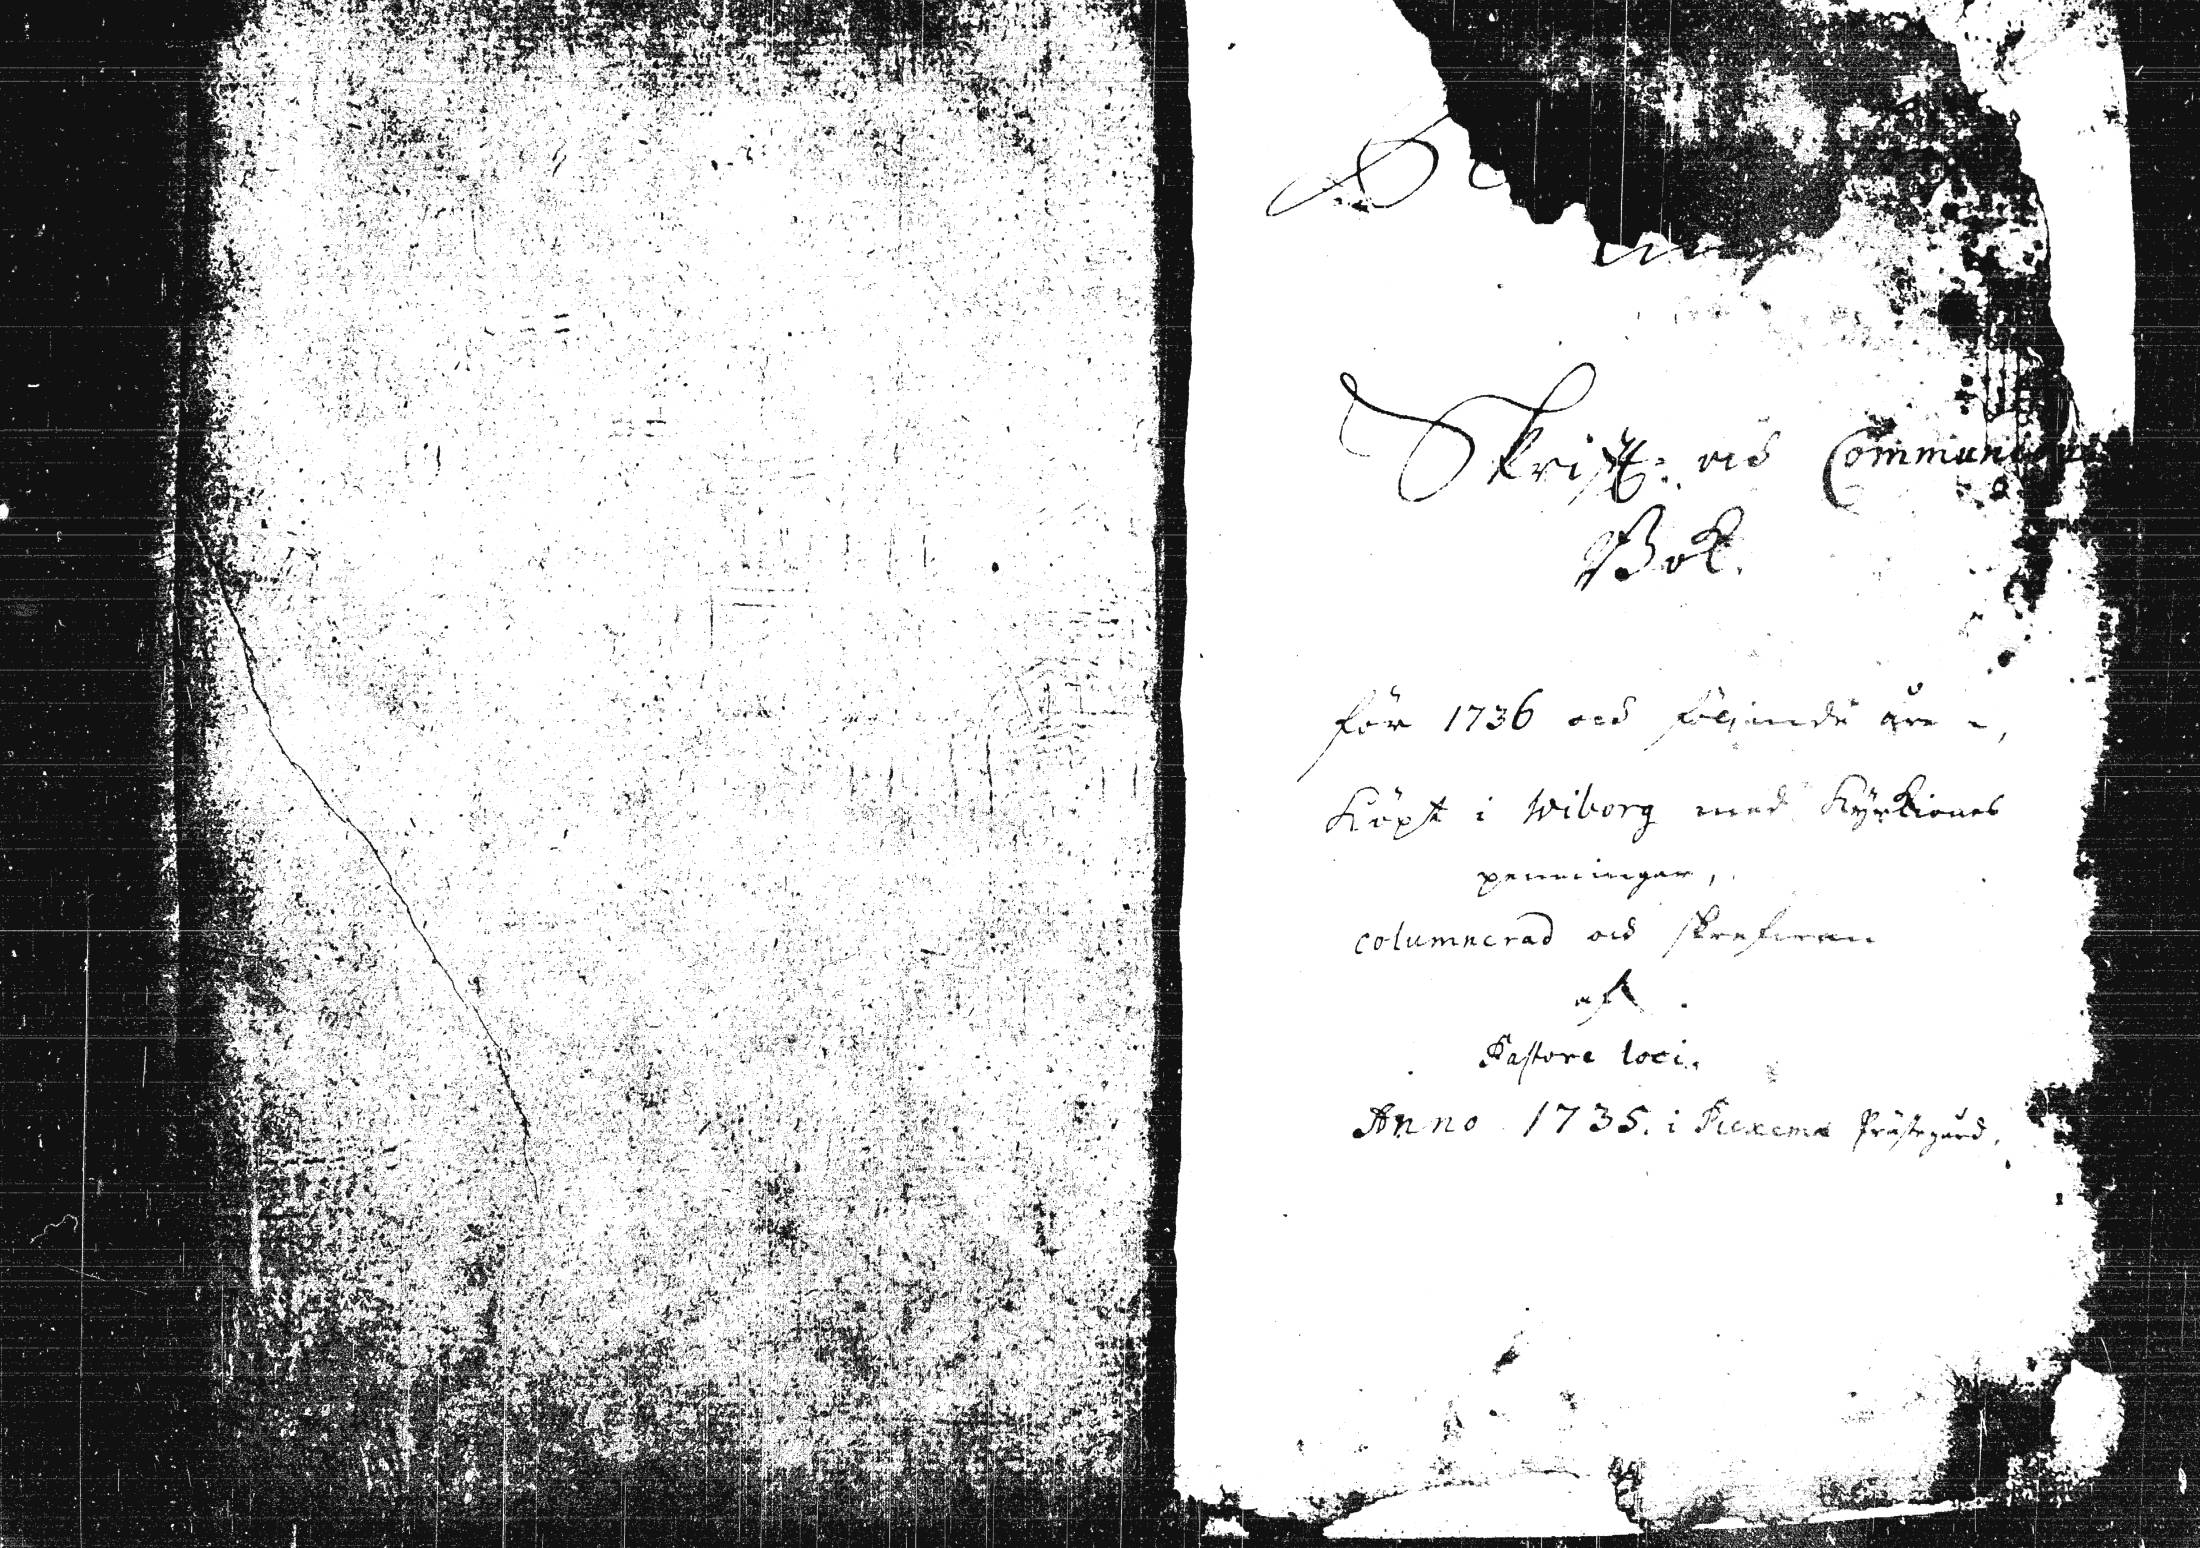 Skrift: ock Communion
Bok.
för 1736 ock följande åren,
Köpt i Wiborg med Kyrkiones
penningar,
columnerad ock skrefwen
af
Pastore loci.
Anno 1735. i Piexemä Prästegård,